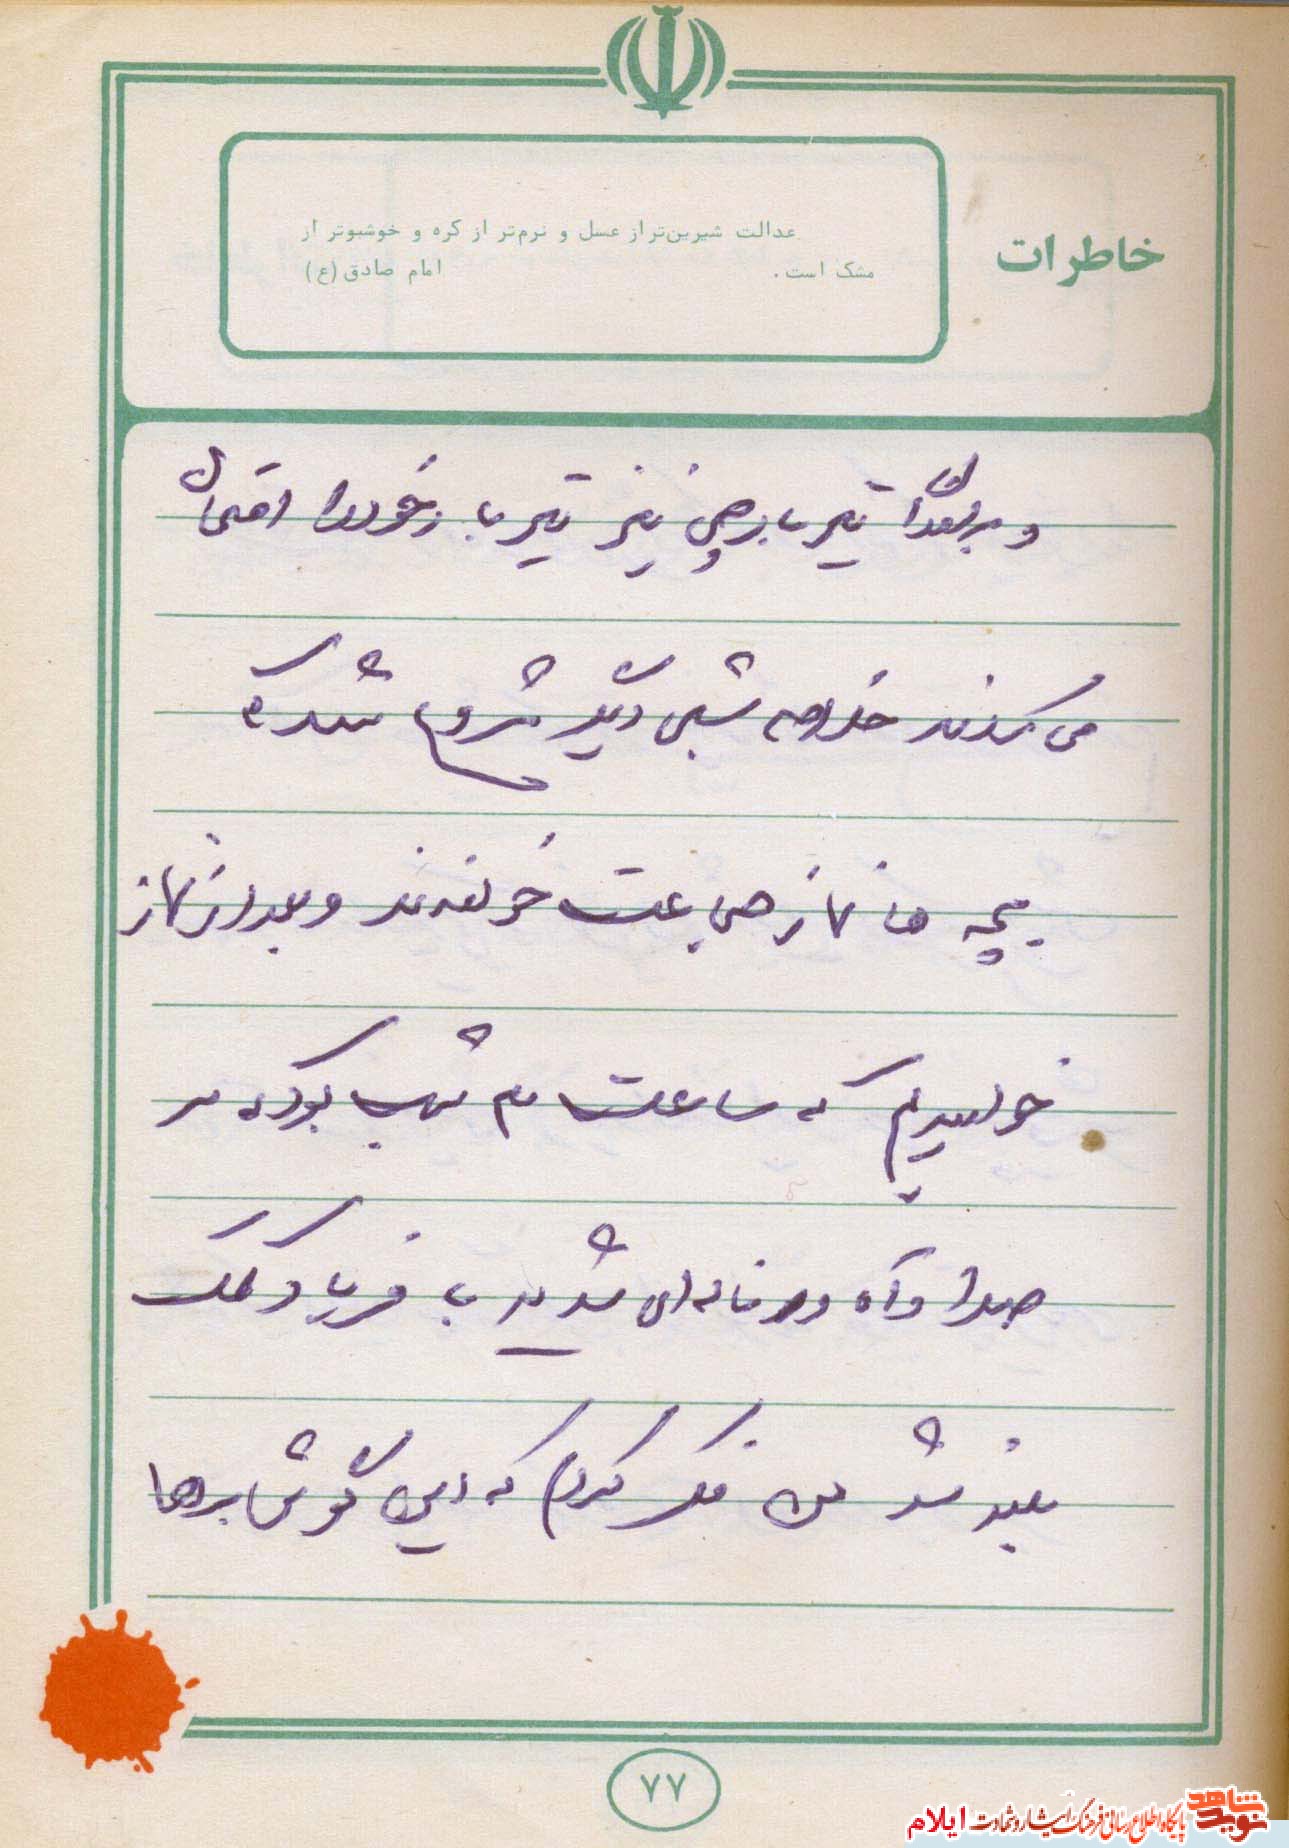 خاطرات
عدالت شیرین‌تر از عسل و نرم‌تر از کره و خوشبوتر از
مشک است. امام صادق (ع)
و تیر بار چی نیز تیر بار خود را
می کند خلاصه شبی دیگر شروع شد که
بچه ها نماز جماعت خواندند و بعد از نماز
خوابیدیم که ساعت شب بود که
صدا و آه و ناله ای شدید با فریاد کمک
بلند شد من فکر کردم که این گوش برها
۷۷
نوید شاهد پایگاه اطلاع رسانی فرهنگ ایثار و شهادت ایلام